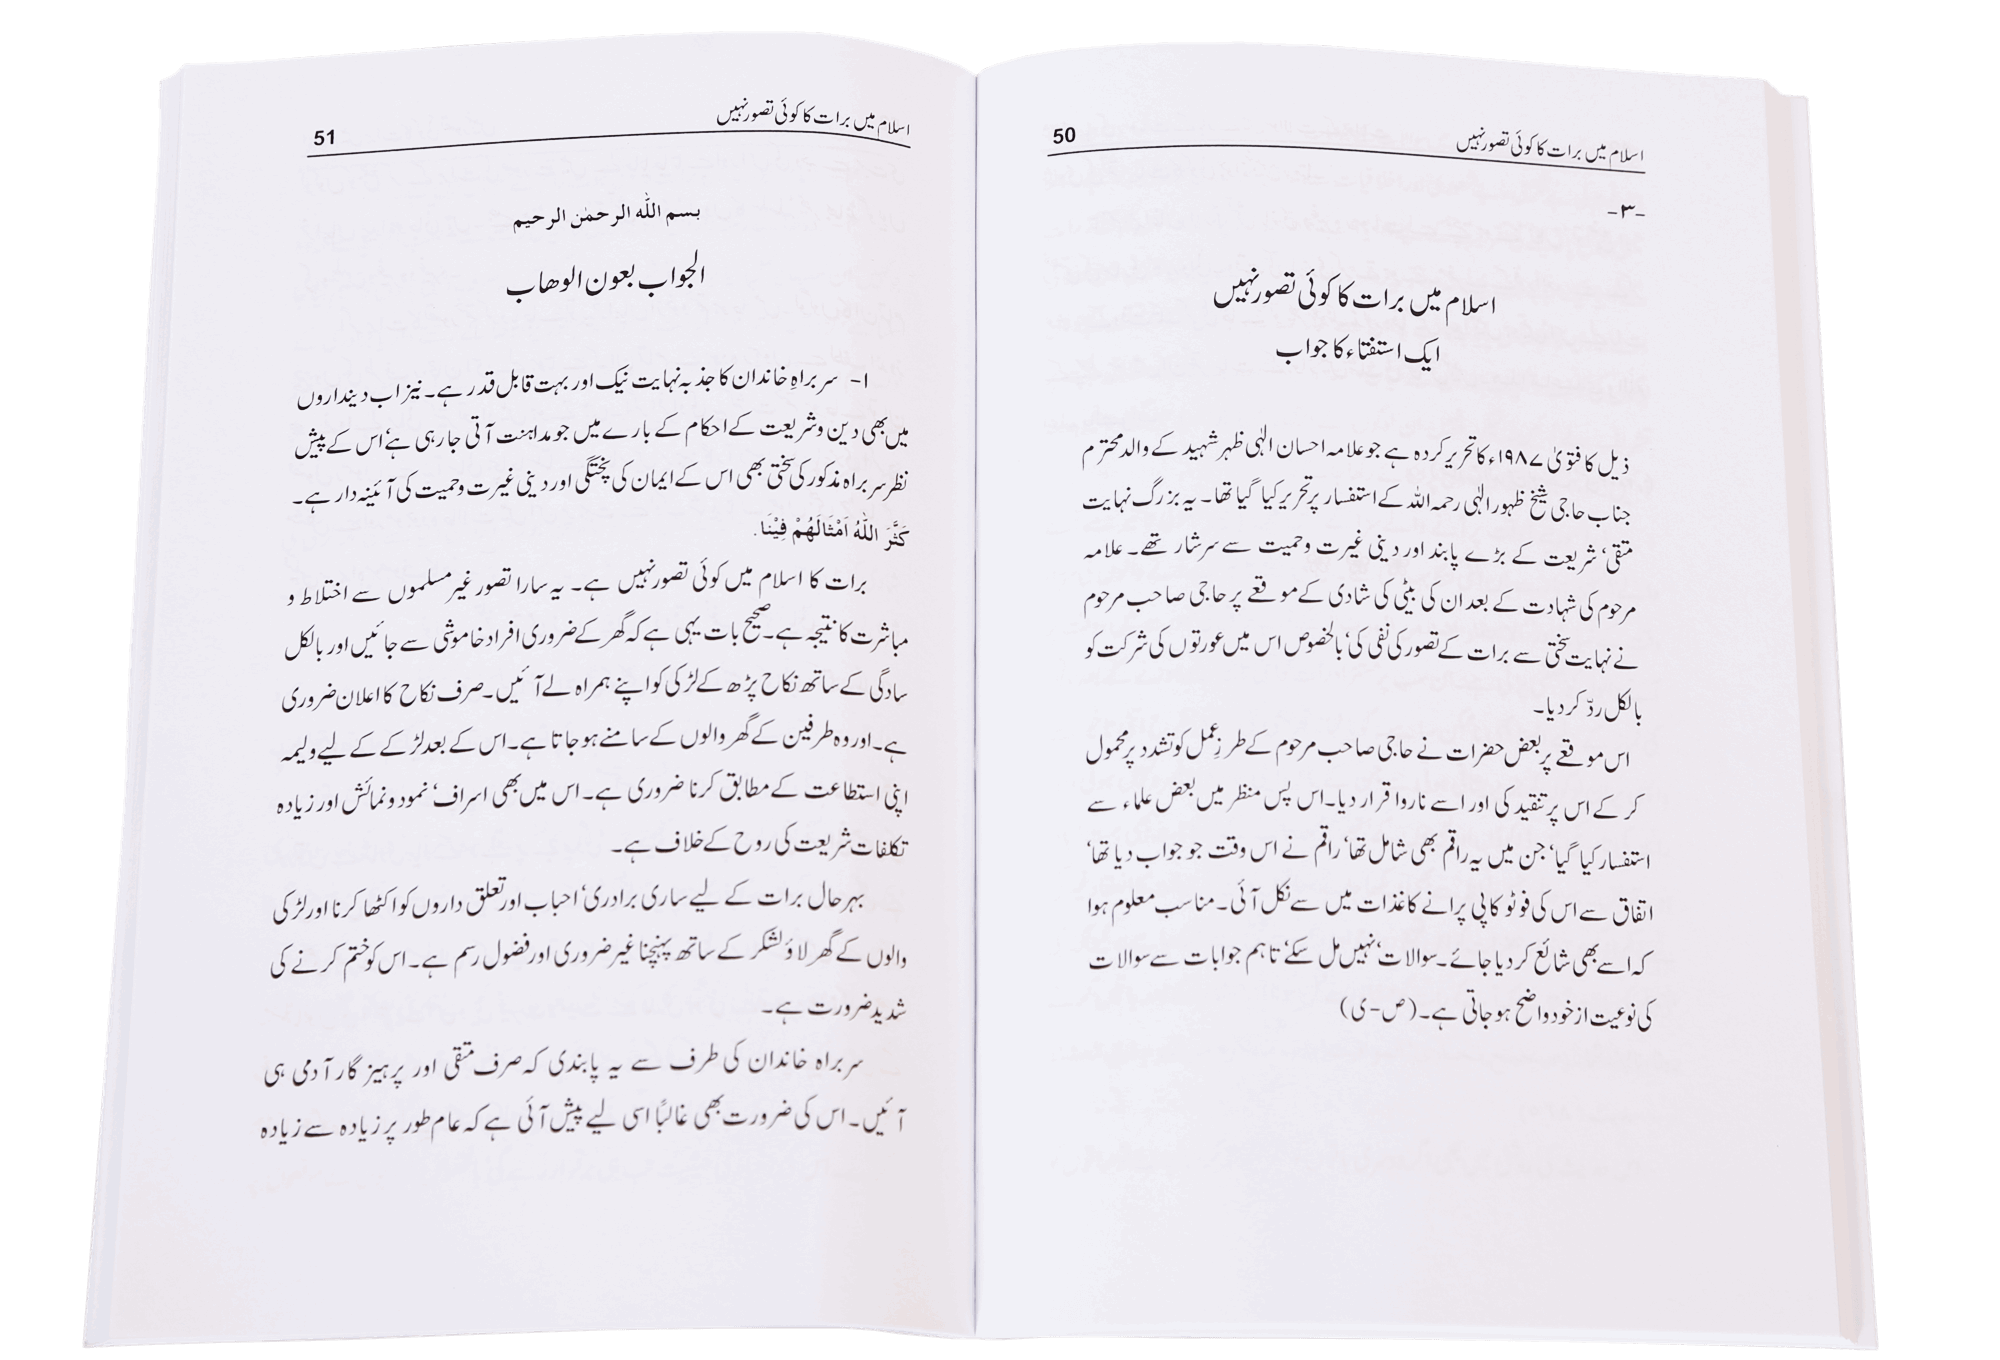 اسلام میں برات کا کوئی تصور نہیں 50
-۳-
اسلام میں برات کا کوئی تصور نہیں
ایک استفتاء کا جواب
ذیل کا فتویٰ ۱۹۸۷ء کا تحریر کردہ ہے جو علامہ احسان الٰہی ظہر شہید کے والد محترم
جناب حاجی شیخ ظہور الٰہی رحمہ اللہ کے استفسار پر تحریر کیا گیا تھا۔ یہ بزرگ نہایت
متقی‘ شریعت کے بڑے پابند اور دینی غیرت و حمیت سے سرشار تھے۔ علامہ
مرحوم کی شہادت کے بعد ان کی بیٹی کی شادی کے موقعے پر حاجی صاحب مرحوم
نے نہایت سختی سے برات کے تصور کی نفی کی‘ بالخصوص اس میں عورتوں کی شرکت کو
بالکل ردّ کر دیا۔
اس موقعے پر بعض حضرات نے حاجی صاحب مرحوم کے طرزِ عمل کو تشدد پر محمول
کر کے اس پر تنقید کی اور اسے ناروا قرار دیا۔ اس پس منظر میں بعض علماء سے
استفسار کیا گیا‘ جن میں یہ راقم بھی شامل تھا‘ راقم نے اس وقت جو جواب دیا تھا‘
اتفاق سے اس کی فوٹو کاپی پرانے کاغذات میں سے نکل آئی۔ مناسب معلوم ہوا
کہ اسے بھی شائع کر دیا جائے۔ سوالات‘ نہیں مل سکے‘ تاہم جوابات سے سوالات
کی نوعیت از خود واضح ہو جاتی ہے۔ (ص-ی)
اسلام میں برات کا کوئی تصور نہیں 51
بسم اللّٰہ الرحمٰن الرحیم
الجواب بعون الوھاب
۱- سربراہِ خاندان کا جذبہ نہایت نیک اور بہت قابل قدر ہے۔ نیز اب دینداروں
میں بھی دین و شریعت کے احکام کے بارے میں جو مداہنت آتی جا رہی ہے‘ اس کے پیش
نظر سربراہ مذکور کی سختی بھی اس کے ایمان کی پختگی اور دینی غیرت و حمیت کی آئینہ دار ہے۔
کَثَّرَ اللّٰہُ اَمْثَالَھُمْ فِیْنَا.
برات کا اسلام میں کوئی تصور نہیں ہے۔ یہ سارا تصور غیر مسلموں سے اختلاط و
مباشرت کا نتیجہ ہے۔ صحیح بات یہی ہے کہ گھر کے ضروری افراد خاموشی سے جائیں اور بالکل
سادگی کے ساتھ نکاح پڑھ کے لڑکی کو اپنے ہمراہ لے آئیں۔ صرف نکاح کا اعلان ضروری
ہے۔ اور وہ طرفین کے گھر والوں کے سامنے ہو جاتا ہے۔ اس کے بعد لڑکے کے لیے ولیمہ
اپنی استطاعت کے مطابق کرنا ضروری ہے۔ اس میں بھی اسراف‘ نمود و نمائش اور زیادہ
تکلفات شریعت کی روح کے خلاف ہے۔
بہر حال برات کے لیے ساری برادری‘ احباب اور تعلق داروں کو اکٹھا کرنا اور لڑکی
والوں کے گھر لاؤ لشکر کے ساتھ پہنچنا غیر ضروری اور فضول رسم ہے۔ اس کو ختم کرنے کی
شدید ضرورت ہے۔
سربراہ خاندان کی طرف سے یہ پابندی کہ صرف متقی اور پرہیز گار آدمی ہی
آئیں۔ اس کی ضرورت بھی غالباً اسی لیے پیش آئی ہے کہ عام طور پر زیادہ سے زیادہ